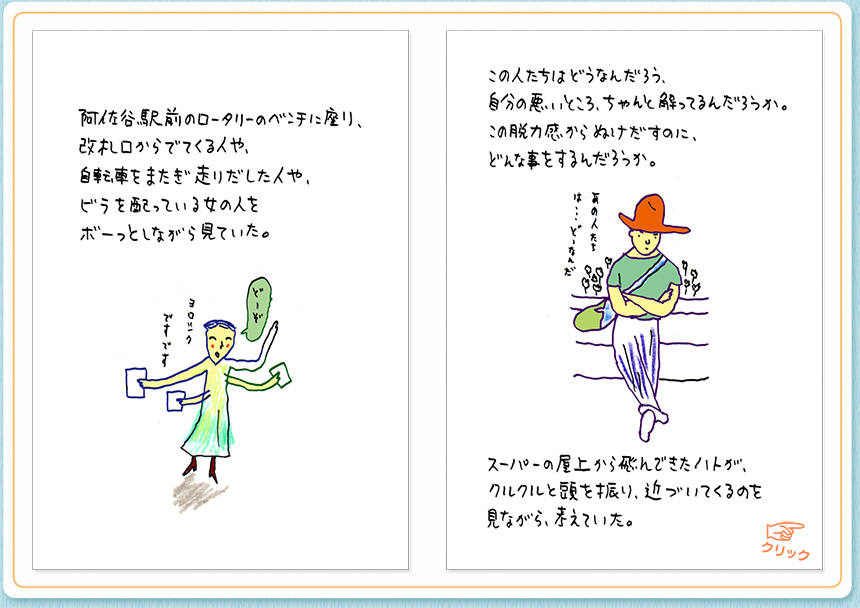 阿佐谷駅前のロータリーのベンチに座り、
改札口からでてくる人や、
自転車をまたぎ走りだした人や、
ビラを配っている女の人を
ボーっとしながら見ていた。
どーぞ
ヨロシク
ですです
この人たちはどうなんだろう、
自分の悪いところ、ちゃんと解ってるんだろうか。
この脱力感からぬけだすのに、
どんな事をするんだろうか。
あの人たち
は・・・どーなんだ
スーパーの屋上から飛んできたハトが、
クルクルと頭を振り、近づいてくるのを
見ながら、考えていた。
クリック